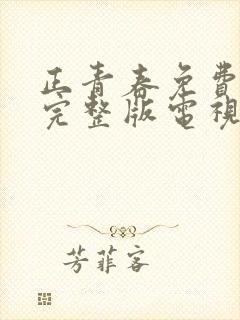 正青春免費
完整版電視
芳菲客